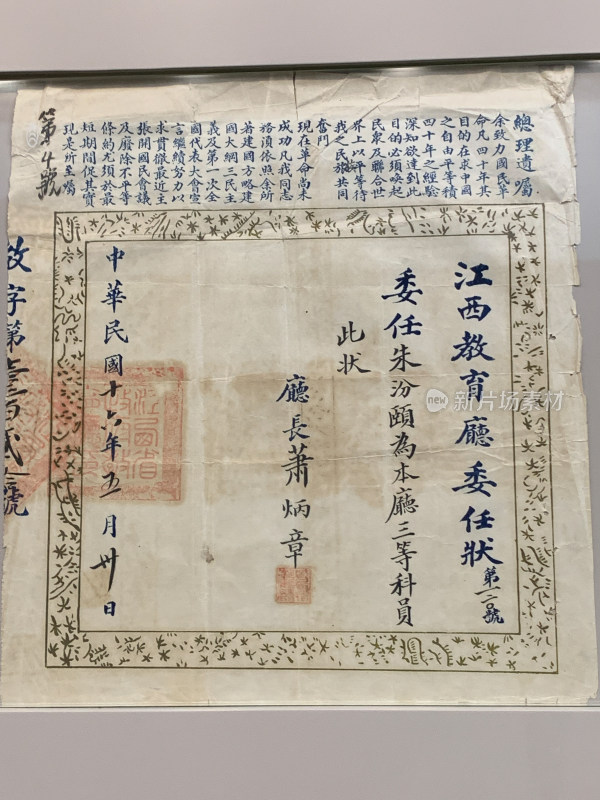 總理遺囑
余致力國民革
命凡四十年其
目的在求中國
之自由平等積
四十年之經驗
深知欲達到此
目的必須喚起
民衆及聯合世
界上以平等待
我之民族共同
奮鬥
現在革命尚未
成功凡我同志
務須依照余所
著建國方略建
國大綱三民主
義及第一次全
國代表大會宣
言繼續努力以
求貫徹最近主
張開國民會議
及廢除不平等
條約尤須於最
短期間促其實
現是所至囑
第4號
江西教育廳委任狀
第一二號
委任朱汾頤為本廳三等科員
此状
廳長蕭炳章
中華民國十六年五月卅日
字第
號
新片场素材